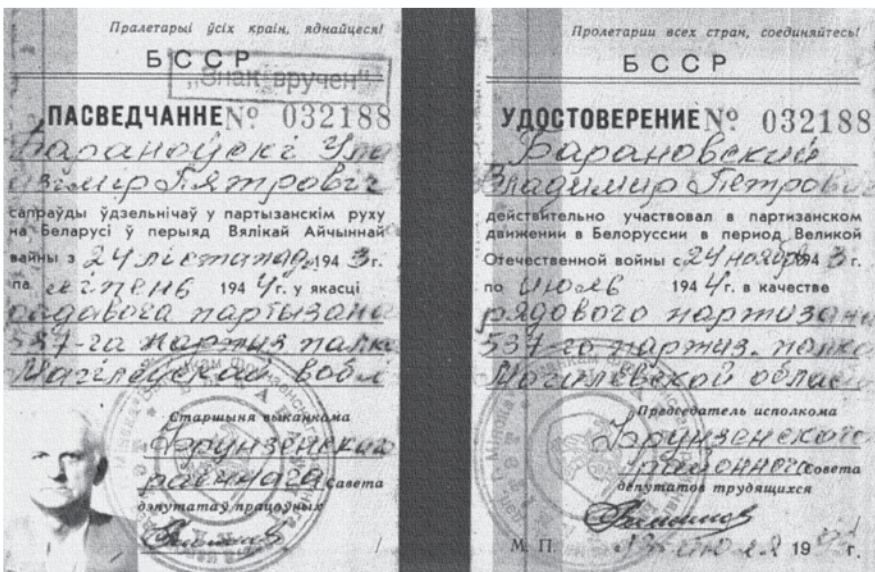 Пралетарыі ўсіх краін, яднайцеся!
БССР
„Знак вручен"
ПАСВЕДЧАННЕ № 032188
Бараноўскі Ула
дзімір Пятровіч
сапраўды ўдзельнічаў у партызанскім руху
на Беларусі ў перыяд Вялікай Айчыннай
вайны з 24 лістапада 1943 г.
па ліпень 1944 г. у якасці
радавога партызана
537-га партыз палка
Магілеўскай вобл
Старшыня выканкома
Фрунзенскага
раённага Савета
дэпутатаў працоўных
Пролетарии всех стран, соединяйтесь!
БССР
УДОСТОВЕРЕНИЕ № 032188
Барановский
Владимир Петрович
действительно участвовал в партизанском
движении в Белоруссии в период Великой
Отечественной войны с 24 ноября 1943 г.
по июль 1944 г. в качестве
рядового партизана
537-го партиз. полка
Могилевской облас
Председатель исполкома
Фрунзенского
районного Совета
депутатов трудящихся
М. П. 19 г.